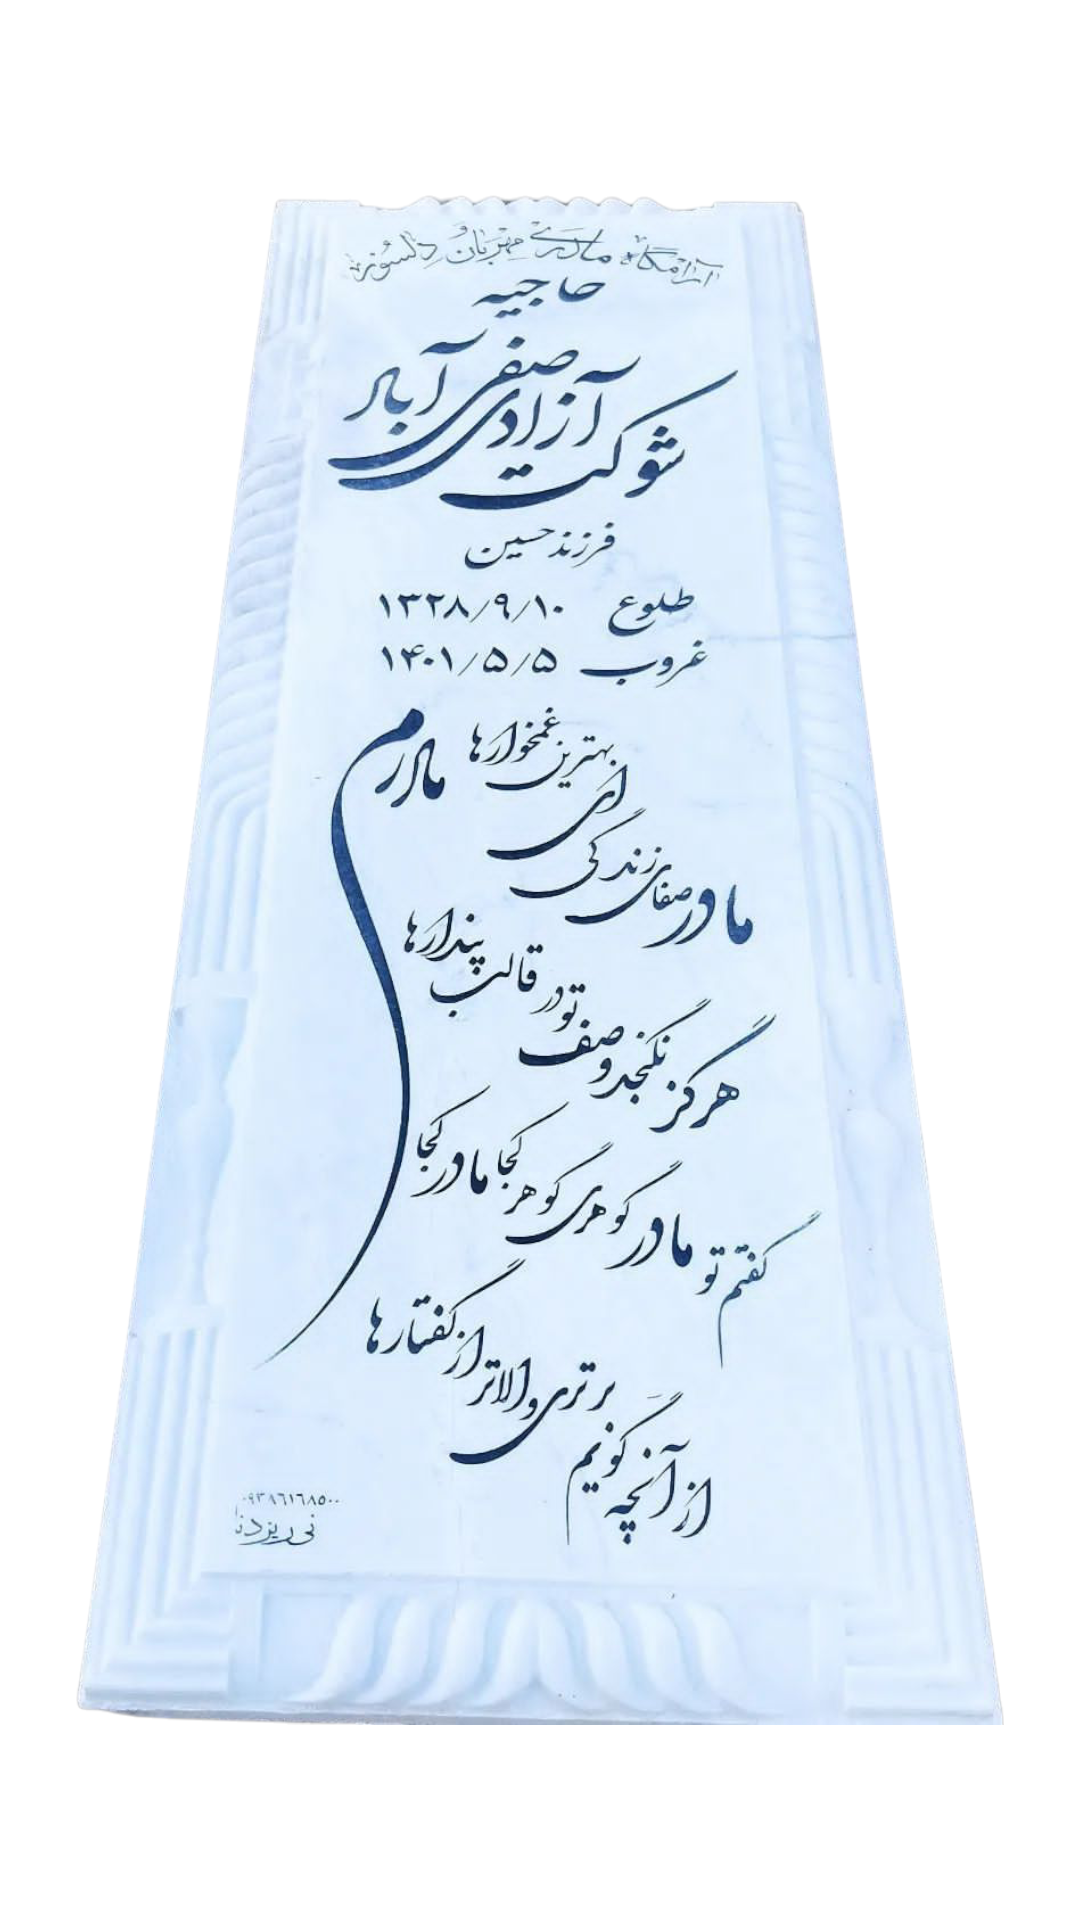 آرامگاه مادری مهربان و دلسوز
حاجیه
شوکت آزادی صفی آباد
فرزند حسین
طلوع ۱۳۲۸/۹/۱۰
غروب ۱۴۰۱/۵/۵
مادرم
مادر صفای زندگی ای بهترین غمخوارها
هرگز نگنجد وصف تو در قالب پندارها
گفتم تو مادر گوهری گوهر کجا مادر کجا
از آنچه گویم برتری و والاتر از گفتارها
۰۹۳۸۶۱۶۸۵۰۰
نی ریز دنا